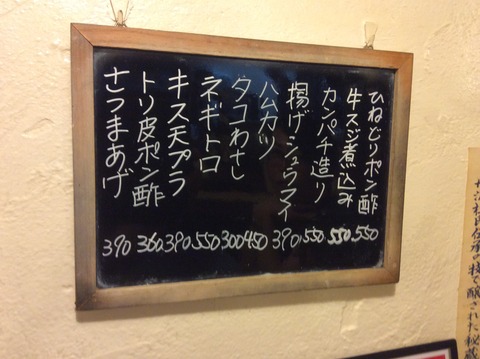 ひねどりポン酢 550
牛スジ煮込み 550
カンパチ造り 550
揚げシュウマイ 390
ハムカツ 450
タコわさ 300
ネギトロ 550
キス天プラ 390
トリ皮ポン酢 360
さつまあげ 390
伝承の技で醸された秘蔵